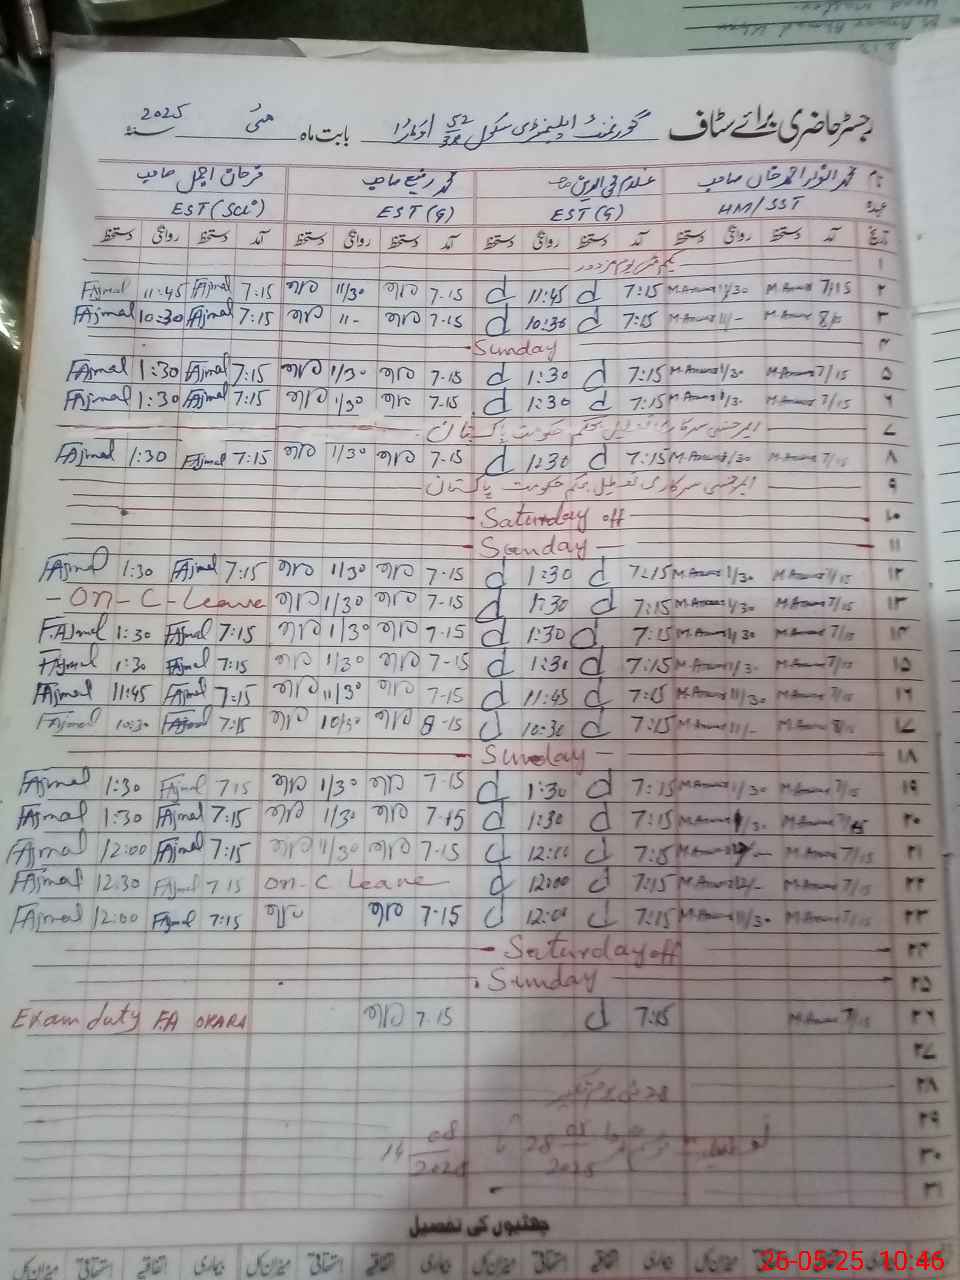 رجسٹر حاضری برائے سٹاف گورنمنٹ ایلیمنٹری سکول 52/3R اوکاڑا بابت ماہ مئی سنہ 2025
نام محمد انوار احمد خان صاحب غلام محی الدین صاحب محمد رفیع صاحب فرحان اجمل صاحب
عہدہ HM/SST EST(G) EST(G) EST(Sci)
تاریخ آمد دستخط روانگی دستخط آمد دستخط روانگی دستخط آمد دستخط روانگی دستخط آمد دستخط روانگی دستخط
۱ یکم مئی یوم مزدور
۲ 7/15 M.Anwar 11/30 M.Anwar 7:15 11:45 7-15 11/30 7:15 FAjmal 11:45 FAjmal
۳ M.Anwar 11/- M.Anwar 7:15 10:30 7-15 11- 7:15 FAjmal 10:30 FAjmal
۴ Sunday
۵ 7/15 M.Anwar 1/30 M.Anwar 7:15 1:30 7-15 1/30 7:15 FAjmal 1:30 FAjmal
۶ 7/15 M.Anwar 1/30 M.Anwar 7:15 1:30 7-15 1/30 7:15 FAjmal 1:30 FAjmal
۷ ایمرجنسی سرکاری تعطیل بحکم حکومت پاکستان
۸ 7/15 M.Anwar 1/30 M.Anwar 7:15 1:30 7-15 1/30 7:15 FAjmal 1:30 FAjmal
۹ ایمرجنسی سرکاری تعطیل بحکم حکومت پاکستان
۱۰ Saturday off
۱۱ Sunday
۱۲ 7/15 M.Anwar 1/30 M.Anwar 7:15 1:30 7-15 1/30 7:15 FAjmal 1:30 FAjmal
۱۳ 7/15 M.Anwar 1/30 M.Anwar 7:15 1:30 7-15 1/30 - On - C - Leave
۱۴ 7/15 M.Anwar 1/30 M.Anwar 7:15 1:30 7-15 1/30 7:15 FAjmal 1:30 F.AJmal
۱۵ 7/15 M.Anwar 1/30 M.Anwar 7:15 1:30 7-15 1/30 7:15 FAjmal 1:30 FAjmal
۱۶ 7/15 M.Anwar 11/30 M.Anwar 7:15 11:45 7-15 11/30 7:15 FAjmal 11:45 FAjmal
۱۷ 8/15 M.Anwar 11/- M.Anwar 7:15 10:30 8-15 10/30 7:15 FAjmal 10:30 FAjmal
۱۸ Sunday
۱۹ 7/15 M.Anwar 1/30 M.Anwar 7:15 1:30 7-15 1/30 7:15 FAjmal 1:30 FAjmal
۲۰ 7/15 M.Anwar 1/30 M.Anwar 7:15 1:30 7-15 1/30 7:15 FAjmal 1:30 FAjmal
۲۱ 7/15 M.Anwar M.Anwar 7:15 12:00 7-15 11/30 7:15 FAjmal 12:00 FAjmal
۲۲ 7/15 M.Anwar 12/- M.Anwar 7:15 12:00 On-C Leave 7:15 FAjmal 12:30 FAjmal
۲۳ 7/15 M.Anwar 11/30 M.Anwar 7:15 12:00 7-15 7:15 FAjmal 12:00 FAjmal
۲۴ Saturday off
۲۵ Sunday
۲۶ 7/15 M.Anwar 7:15 7-15 Exam duty F.A OKARA
۲۷
۲۸ 28 مئی یوم تکبیر
۲۹
۳۰ تعطیلات موسم گرما 28 05 2025 تا 14 08 2025
۳۱
چھٹیوں کی تفصیل
بیماری اتفاقیہ استحقاقی میزان کل بیماری اتفاقیہ استحقاقی میزان کل بیماری اتفاقیہ استحقاقی میزان کل
26-05-25 10:46